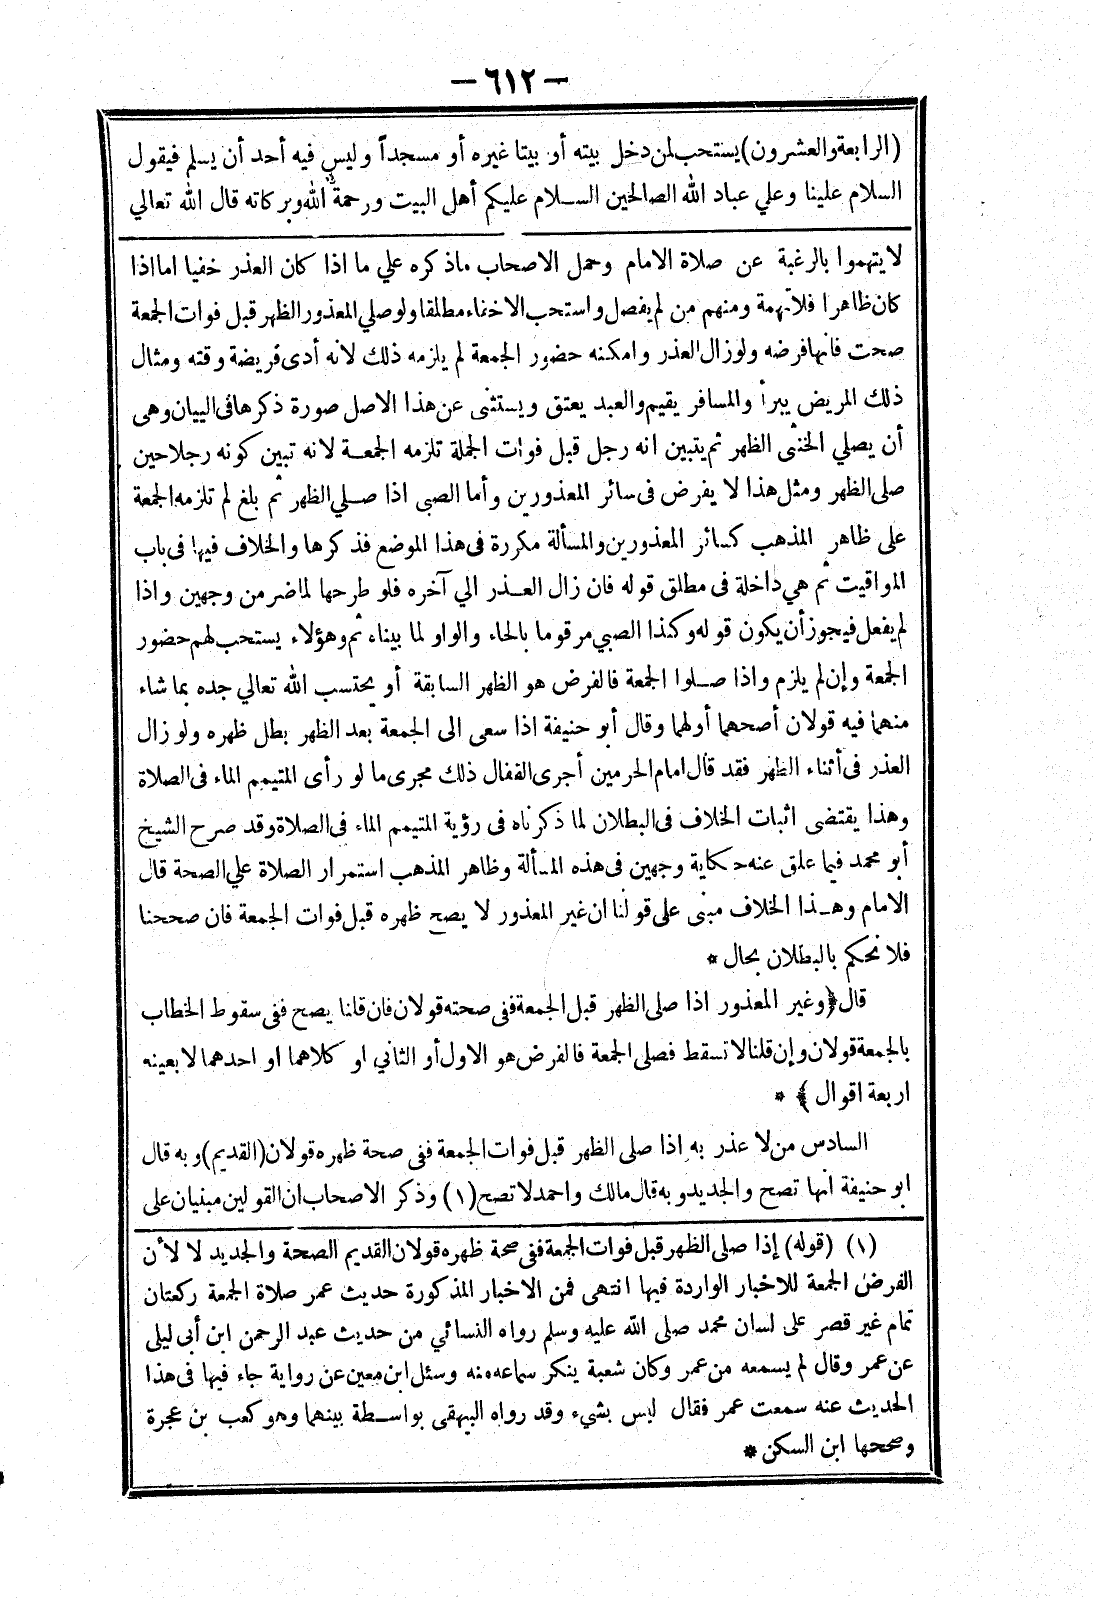 — ٦١٢ —
(الرابعة والعشرون) يستحب لمن دخل بيته أو بيتا غيره أو مسجداً وليس فيه أحد أن يسلم فيقول
السلام علينا وعلي عباد الله الصالحين السلام عليكم أهل البيت ورحمة الله وبركاته قال الله تعالي
لا يتهموا بالرغبة عن صلاة الامام وحمل الاصحاب ماذكره علي ما اذا كان العذر خفيا اما اذا
كان ظاهرا فلا تهمة ومنهم من لم يفصل واستحب الاخفاء مطلقا ولو صلي المعذور الظهر قبل فوات الجمعة
صحت فانها فرضه ولو زال العذر وامكنه حضور الجمعة لم يلزمه ذلك لانه أدى فريضة وقته ومثال
ذلك المريض يبرأ والمسافر يقيم والعبد يعتق ويستثنى عن هذا الاصل صورة ذكرها فى البيان وهى
أن يصلي الخنثى الظهر ثم يتبين انه رجل قبل فوات الجملة تلزمه الجمعة لانه تبين كونه رجلا حين
صلى الظهر ومثل هذا لا يفرض فى سائر المعذورين وأما الصبى اذا صلي الظهر ثم بلغ لم تلزمه الجمعة
على ظاهر المذهب كسائر المعذورين والمسألة مكررة فى هذا الموضع فذكرها والخلاف فيها فى باب
المواقيت ثم هي داخلة فى مطلق قوله فان زال العذر الي آخره فلو طرحها لماضر من وجهين واذا
لم يفعل فيجوز أن يكون قوله وكذا الصبي مرقوما بالحاء والواو لما بيناه ثم وهؤلاء يستحب لهم حضور
الجمعة وإن لم يلزم واذا صلوا الجمعة فالفرض هو الظهر السابقة أو يحتسب الله تعالي جده بما شاء
منهما فيه قولان أصحهما أولهما وقال أبو حنيفة اذا سعى الى الجمعة بعد الظهر بطل ظهره ولو زال
العذر فى أثناء الظهر فقد قال امام الحرمين أجرى القفال ذلك مجرى ما لو رأى المتيمم الماء فى الصلاة
وهذا يقتضى اثبات الخلاف فى البطلان لما ذكرناه فى رؤية المتيمم الماء فى الصلاة وقد صرح الشيخ
أبو محمد فيما علق عنه حكاية وجهين فى هذه المسألة وظاهر المذهب استمرار الصلاة علي الصحة قال
الامام وهذا الخلاف مبنى على قولنا ان غير المعذور لا يصح ظهره قبل فوات الجمعة فان صححنا
فلا نحكم بالبطلان بحال *
قال ﴿وغير المعذور اذا صلى الظهر قبل الجمعة ففى صحته قولان فان قلنا يصح ففى سقوط الخطاب
بالجمعة قولان وإن قلنا لا تسقط فصلى الجمعة فالفرض هو الاول أو الثاني او كلاهما او احدهما لا بعينه
اربعة اقوال﴾ *
السادس من لا عذر به اذا صلى الظهر قبل فوات الجمعة ففى صحة ظهره قولان (القديم) وبه قال
ابو حنيفة انها تصح والجديد وبه قال مالك واحمد لا تصح (١) وذكر الاصحاب ان القولين مبنيان على
(١) (قوله) إذا صلى الظهر قبل فوات الجمعة ففى صحة ظهره قولان القديم الصحة والجديد لا لأن
الفرض الجمعة للاخبار الواردة فيها انتهى فمن الاخبار المذكورة حديث عمر صلاة الجمعة ركعتان
تمام غير قصر على لسان محمد صلى الله عليه وسلم رواه النسائي من حديث عبد الرحمن ابن أبى ليلى
عن عمر وقال لم يسمعه من عمر وكان شعبة ينكر سماعه منه وسئل ابن معين عن رواية جاء فيها فى هذا
الحديث عنه سمعت عمر فقال ليس بشيء وقد رواه البيهقى بواسطة بينهما وهو كعب بن عجرة
وصححها ابن السكن *